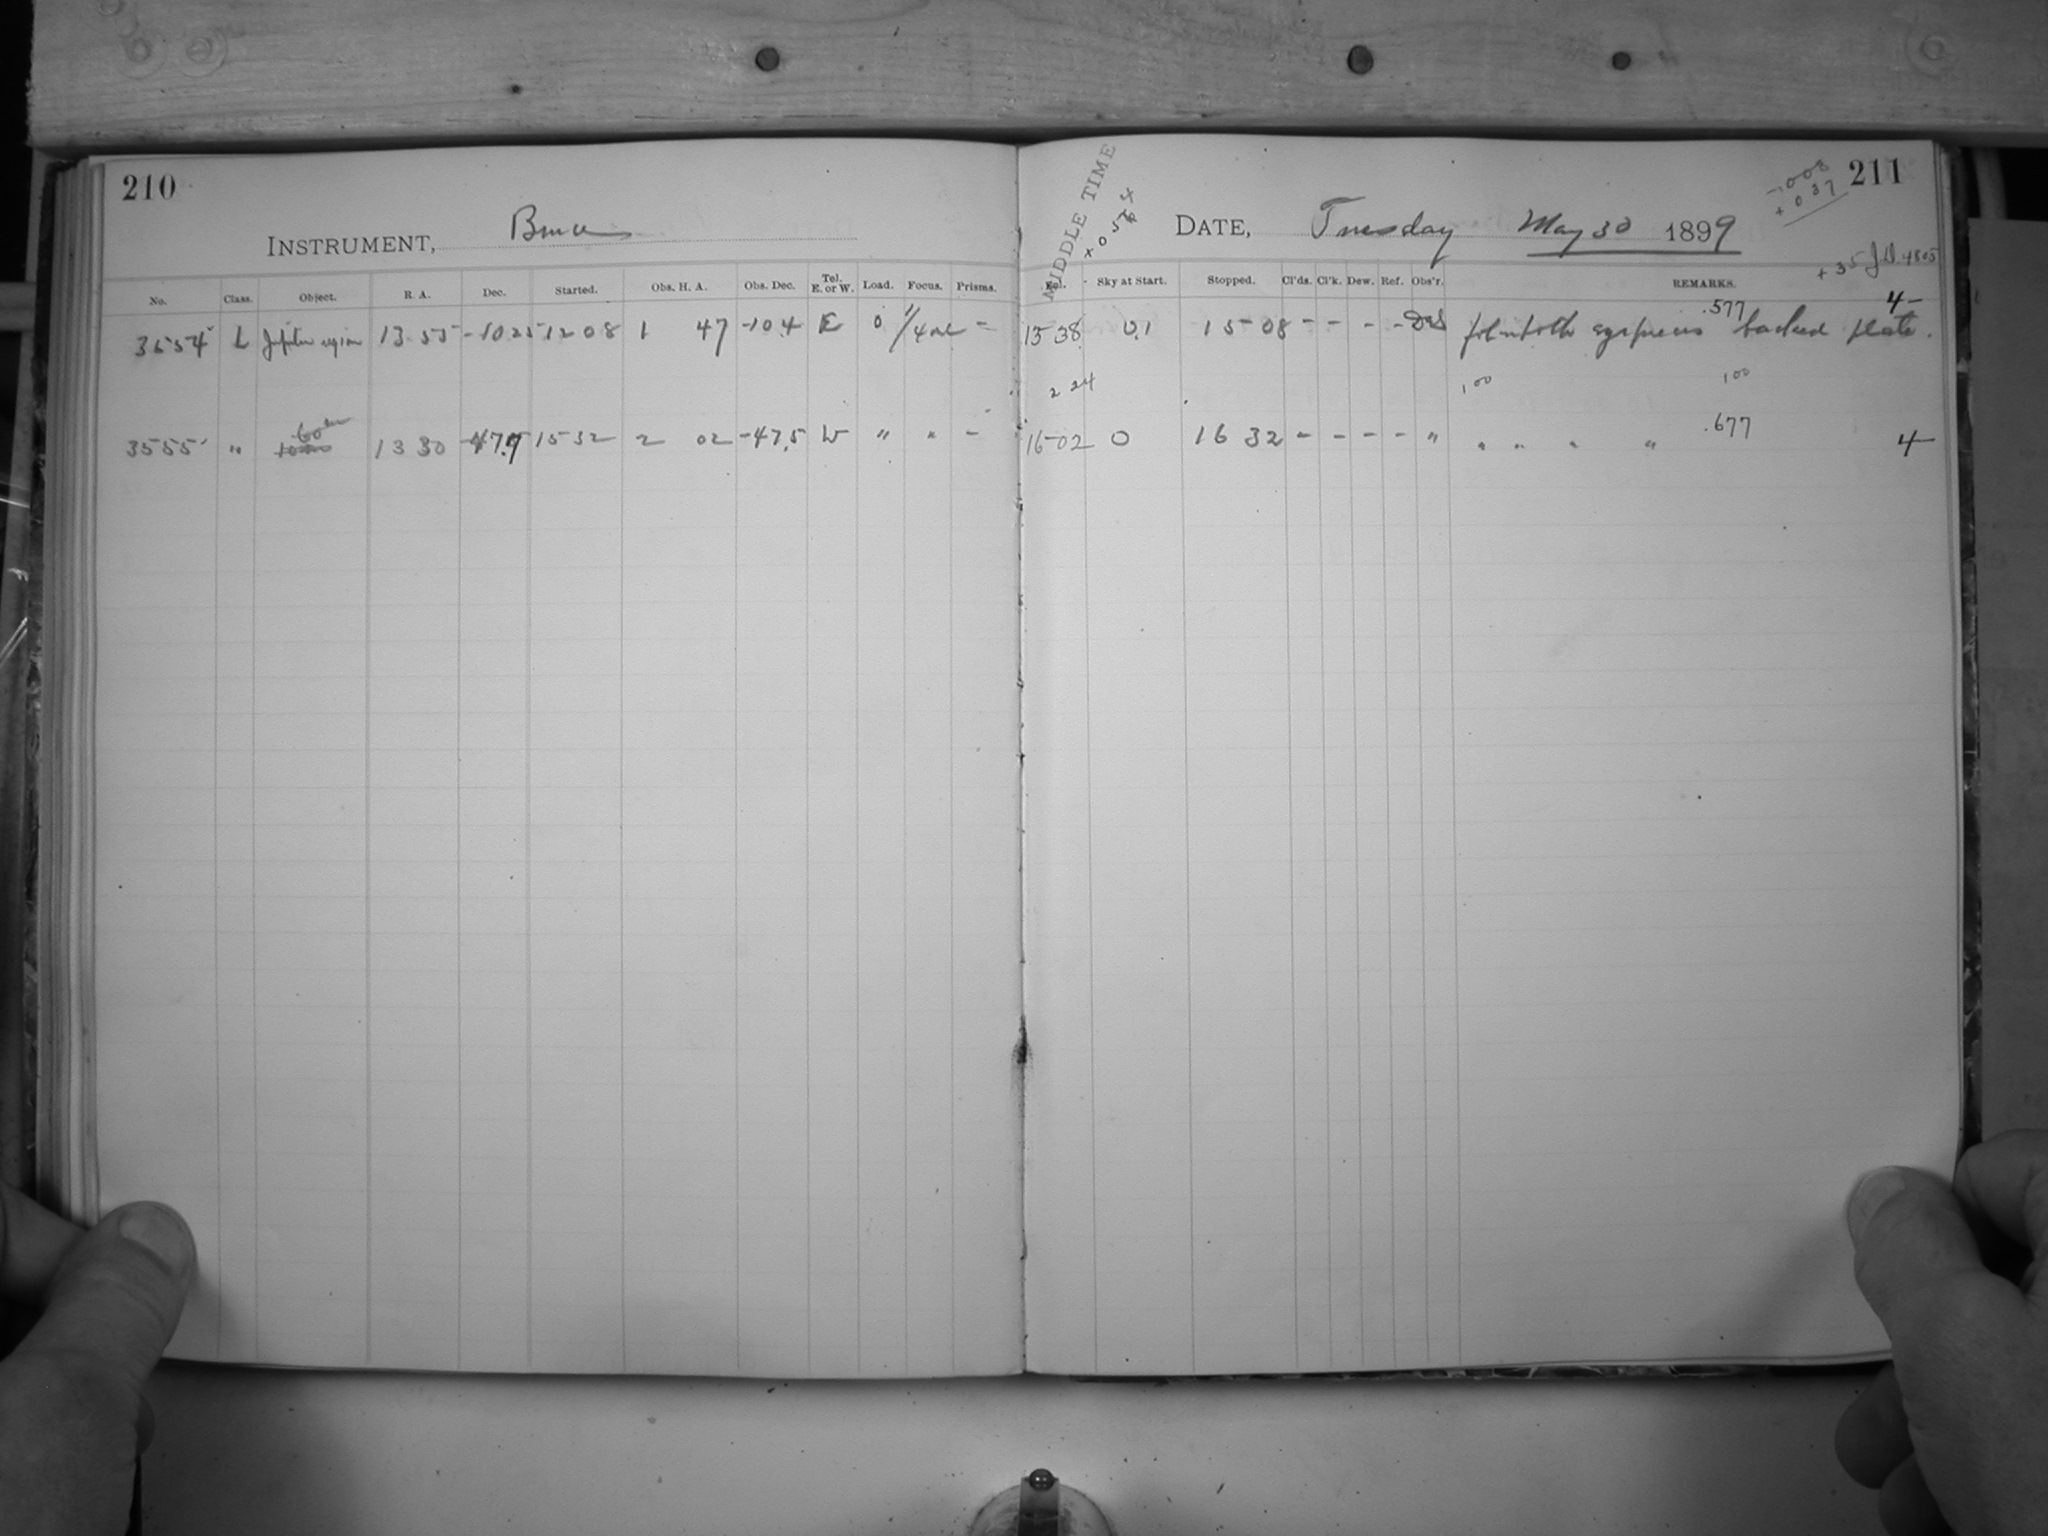 210
INSTRUMENT, Bruce
No. Class. Object. R. A. Dec. Started. Obs. H. A. Obs. Dec. Tel. E. or W. Load. Focus. Prisms.
3554 L Jupiter region 13 55 -10 25 12 08 1 47 -10.4 E 0 -
3555 " 60m 13 30 -47.9 15 32 2 02 -47.5 W " " -
211
MIDDLE TIME
DATE, Tuesday May 30 1899
-008
+037
+35 J.D. 4805
Sky at Start. Stopped. Cl'ds. Cl'k. Dew. Ref. Obs'r. REMARKS.
13 38 0.1 15 08 - - - - .577 backed plate. 4-
2 24 1 00 1 00
16 02 0 16 32 - - - - " " " " " .677 4